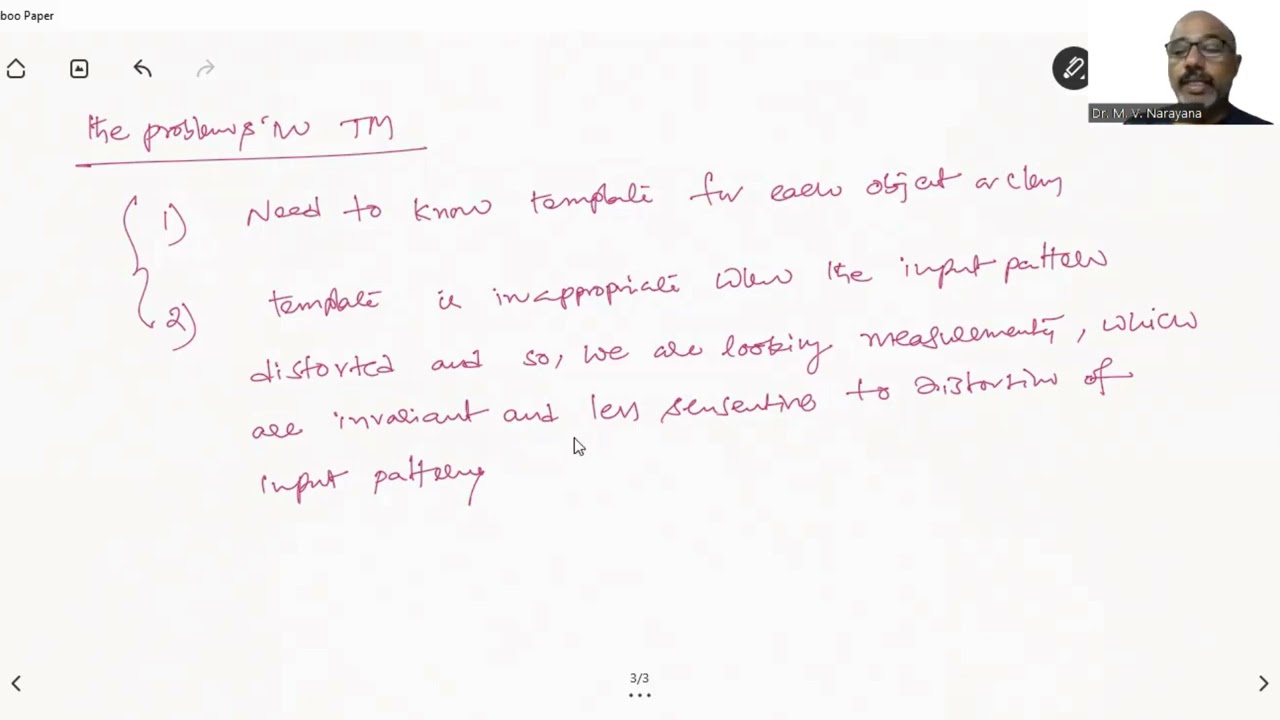 boo Paper
Dr. M. V. Narayana
the problems in TM
1) Need to know template for each object or class
2) template is inappropriate when the input pattern
distorted and so, we are looking measurements, which
are invariant and less sensentive to distortion of
input patterns
3/3